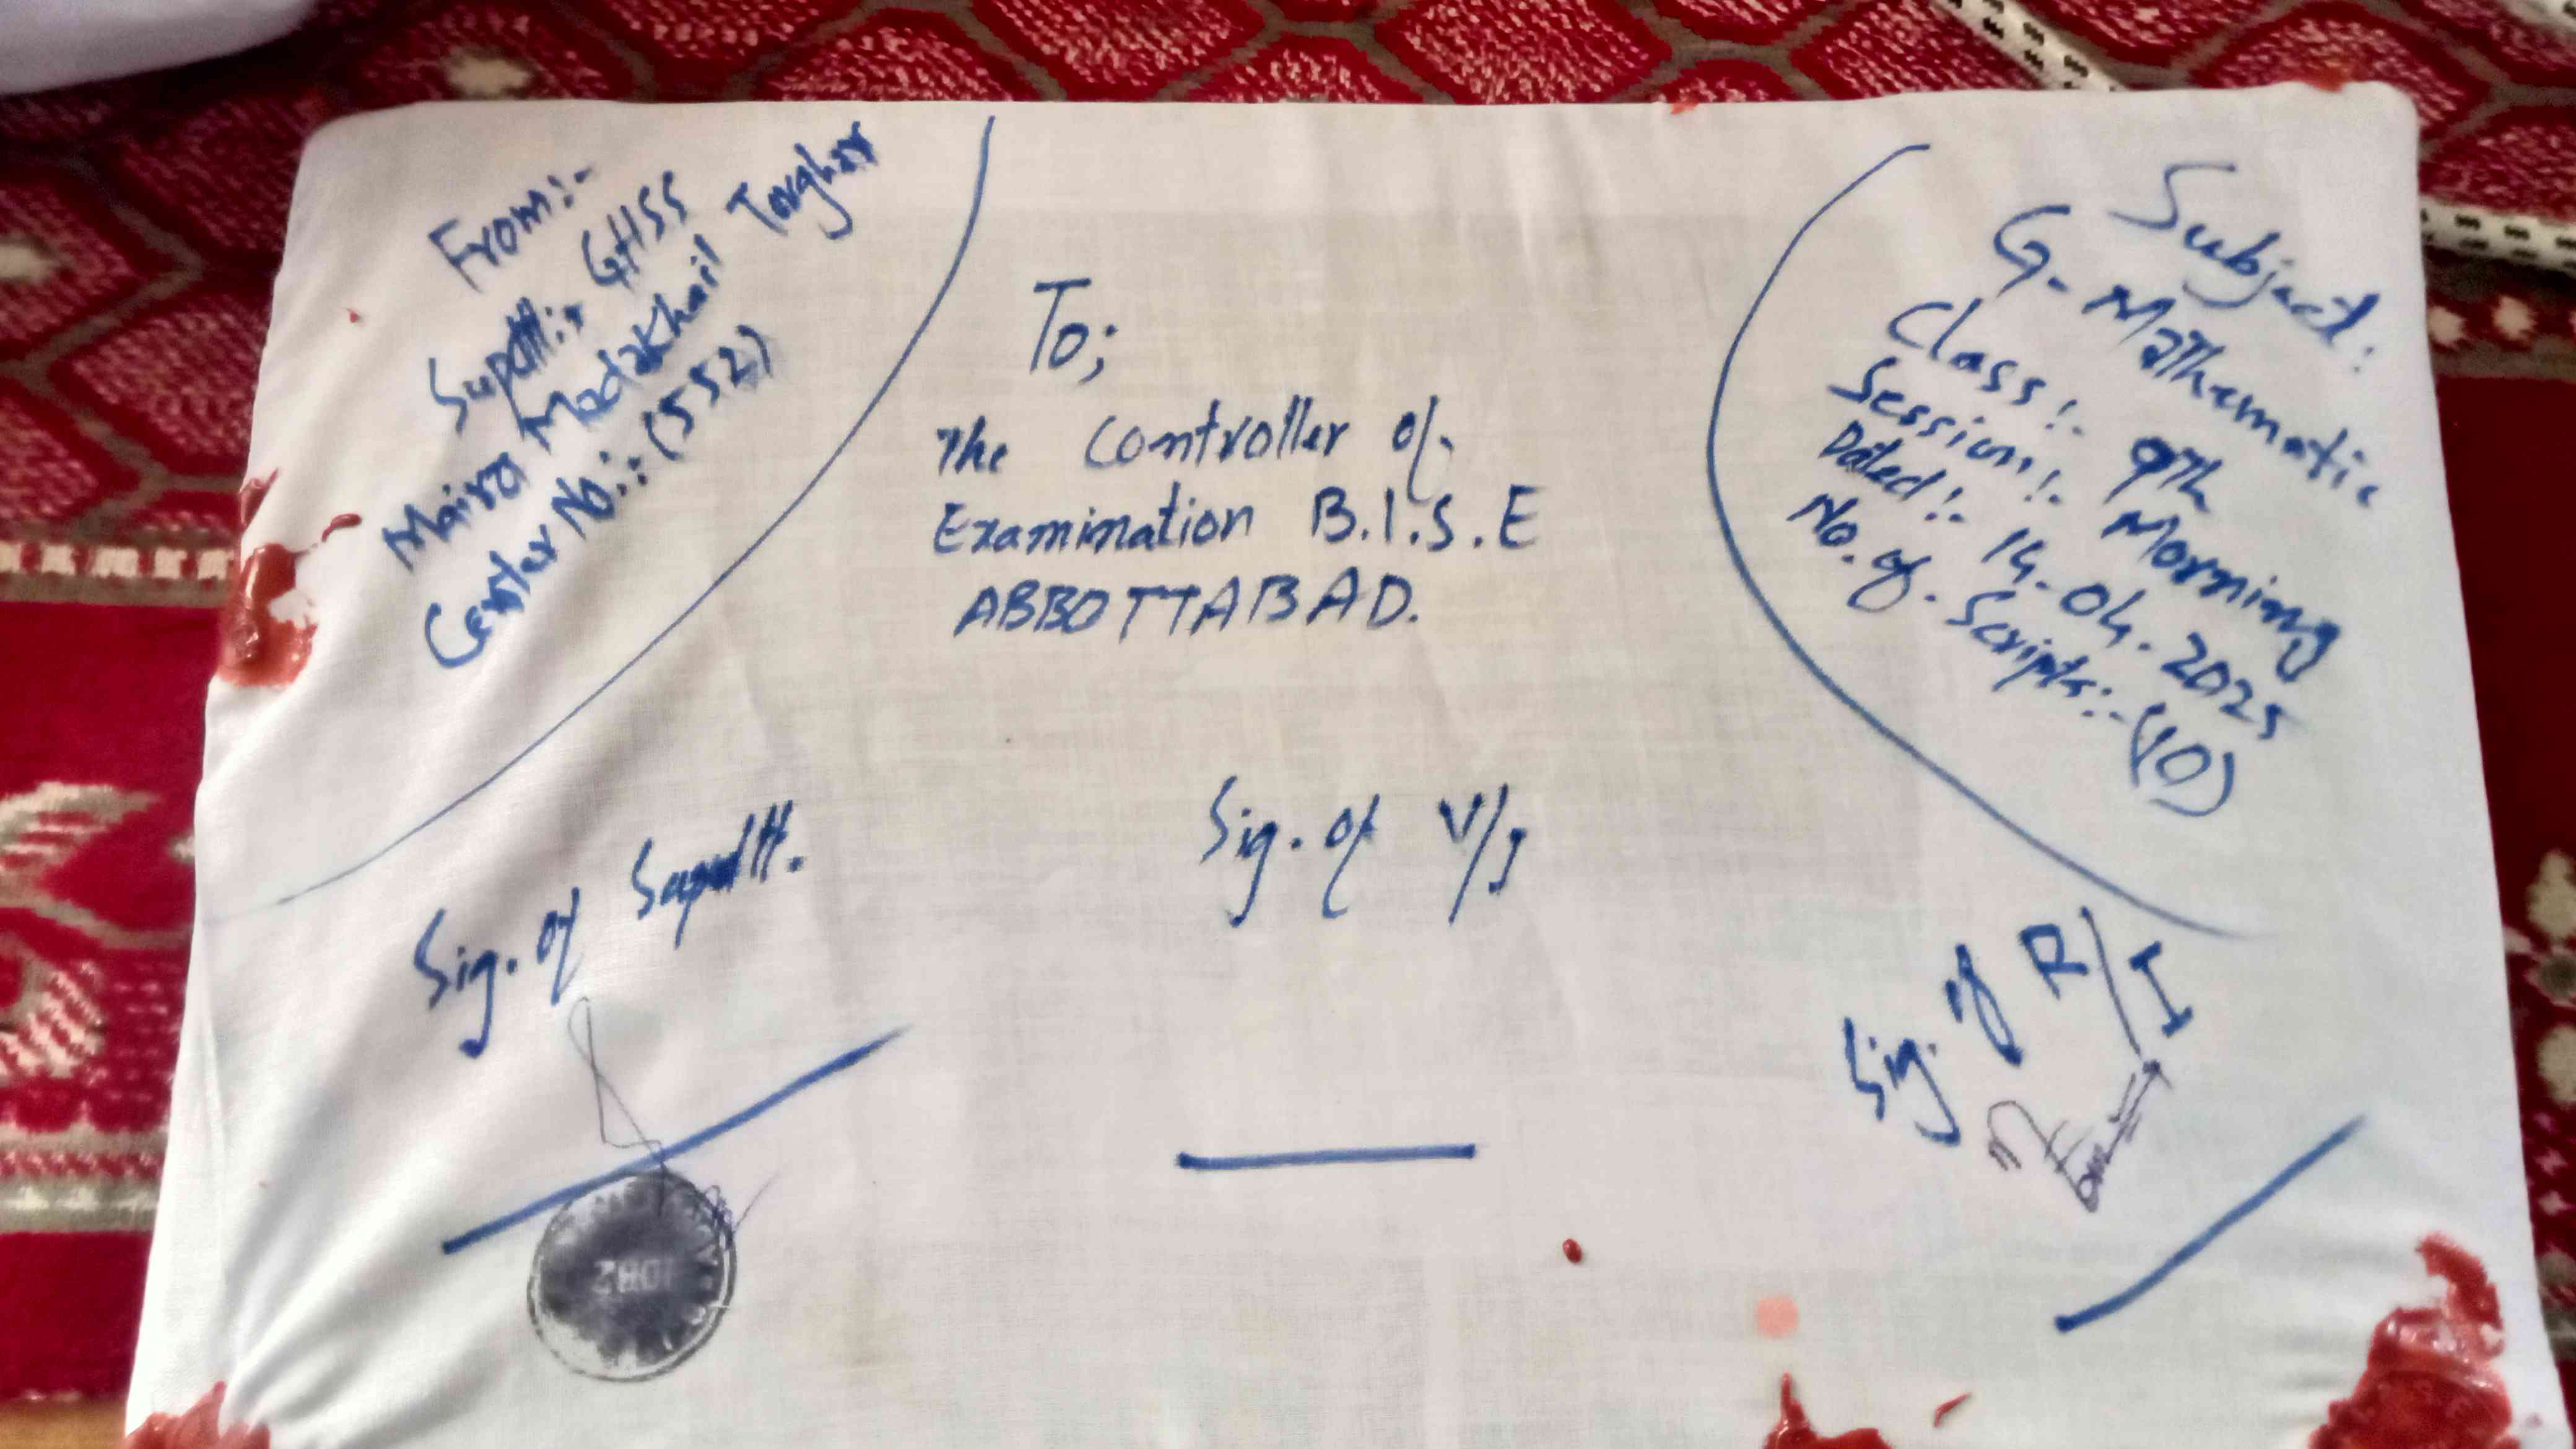 From:-
Supdtt:, GHSS
Maira Madakhail Torghar
Center No:: (552)
To;
The Controller of
Examination B.I.S.E
ABBOTTABAD.
Subject:
G-Mathematic
Class:- 9th
Session:- Morning
Dated:- 14-04-2025
No. of. Scripts:- (10)
Sig. of Supdtt.
Sig. of V/I
Sig. of R/I